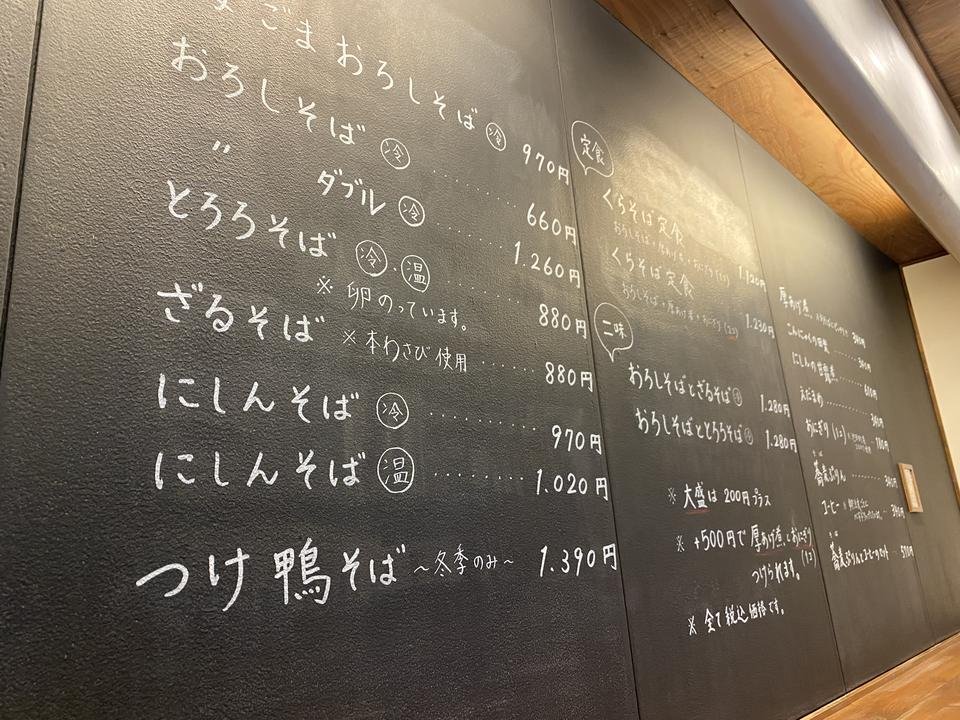 ごま おろしそば 冷 970円
おろしそば 冷 ‥‥‥ 660円
〃 ダブル 冷 ‥‥‥ 1.260円
とろろそば 冷・温 ‥‥‥ 880円
※ 卵のっています。
ざるそば ※本わさび使用 ‥‥‥ 880円
にしんそば 冷 ‥‥‥ 970円
にしんそば 温 ‥‥‥ 1.020円
つけ鴨そば ～冬季のみ～ 1.390円
定食
くらそば定食 1.120円
くらそば定食 1.230円
二味
おろしそばとざるそば 冷 1.280円
おろしそばととろろそば 冷 1.280円
※ 大盛は 200円プラス
※ +500円で 厚あげ煮とおにぎり(1コ)
つけられます。
※ 全て税込価格です。
厚あげ煮
こんにゃくの田楽
にしんの甘露煮
えだまめ
おにぎり(1コ)
蕎麦ぷりん
コーヒー
蕎麦ぷりんとコーヒーのセット